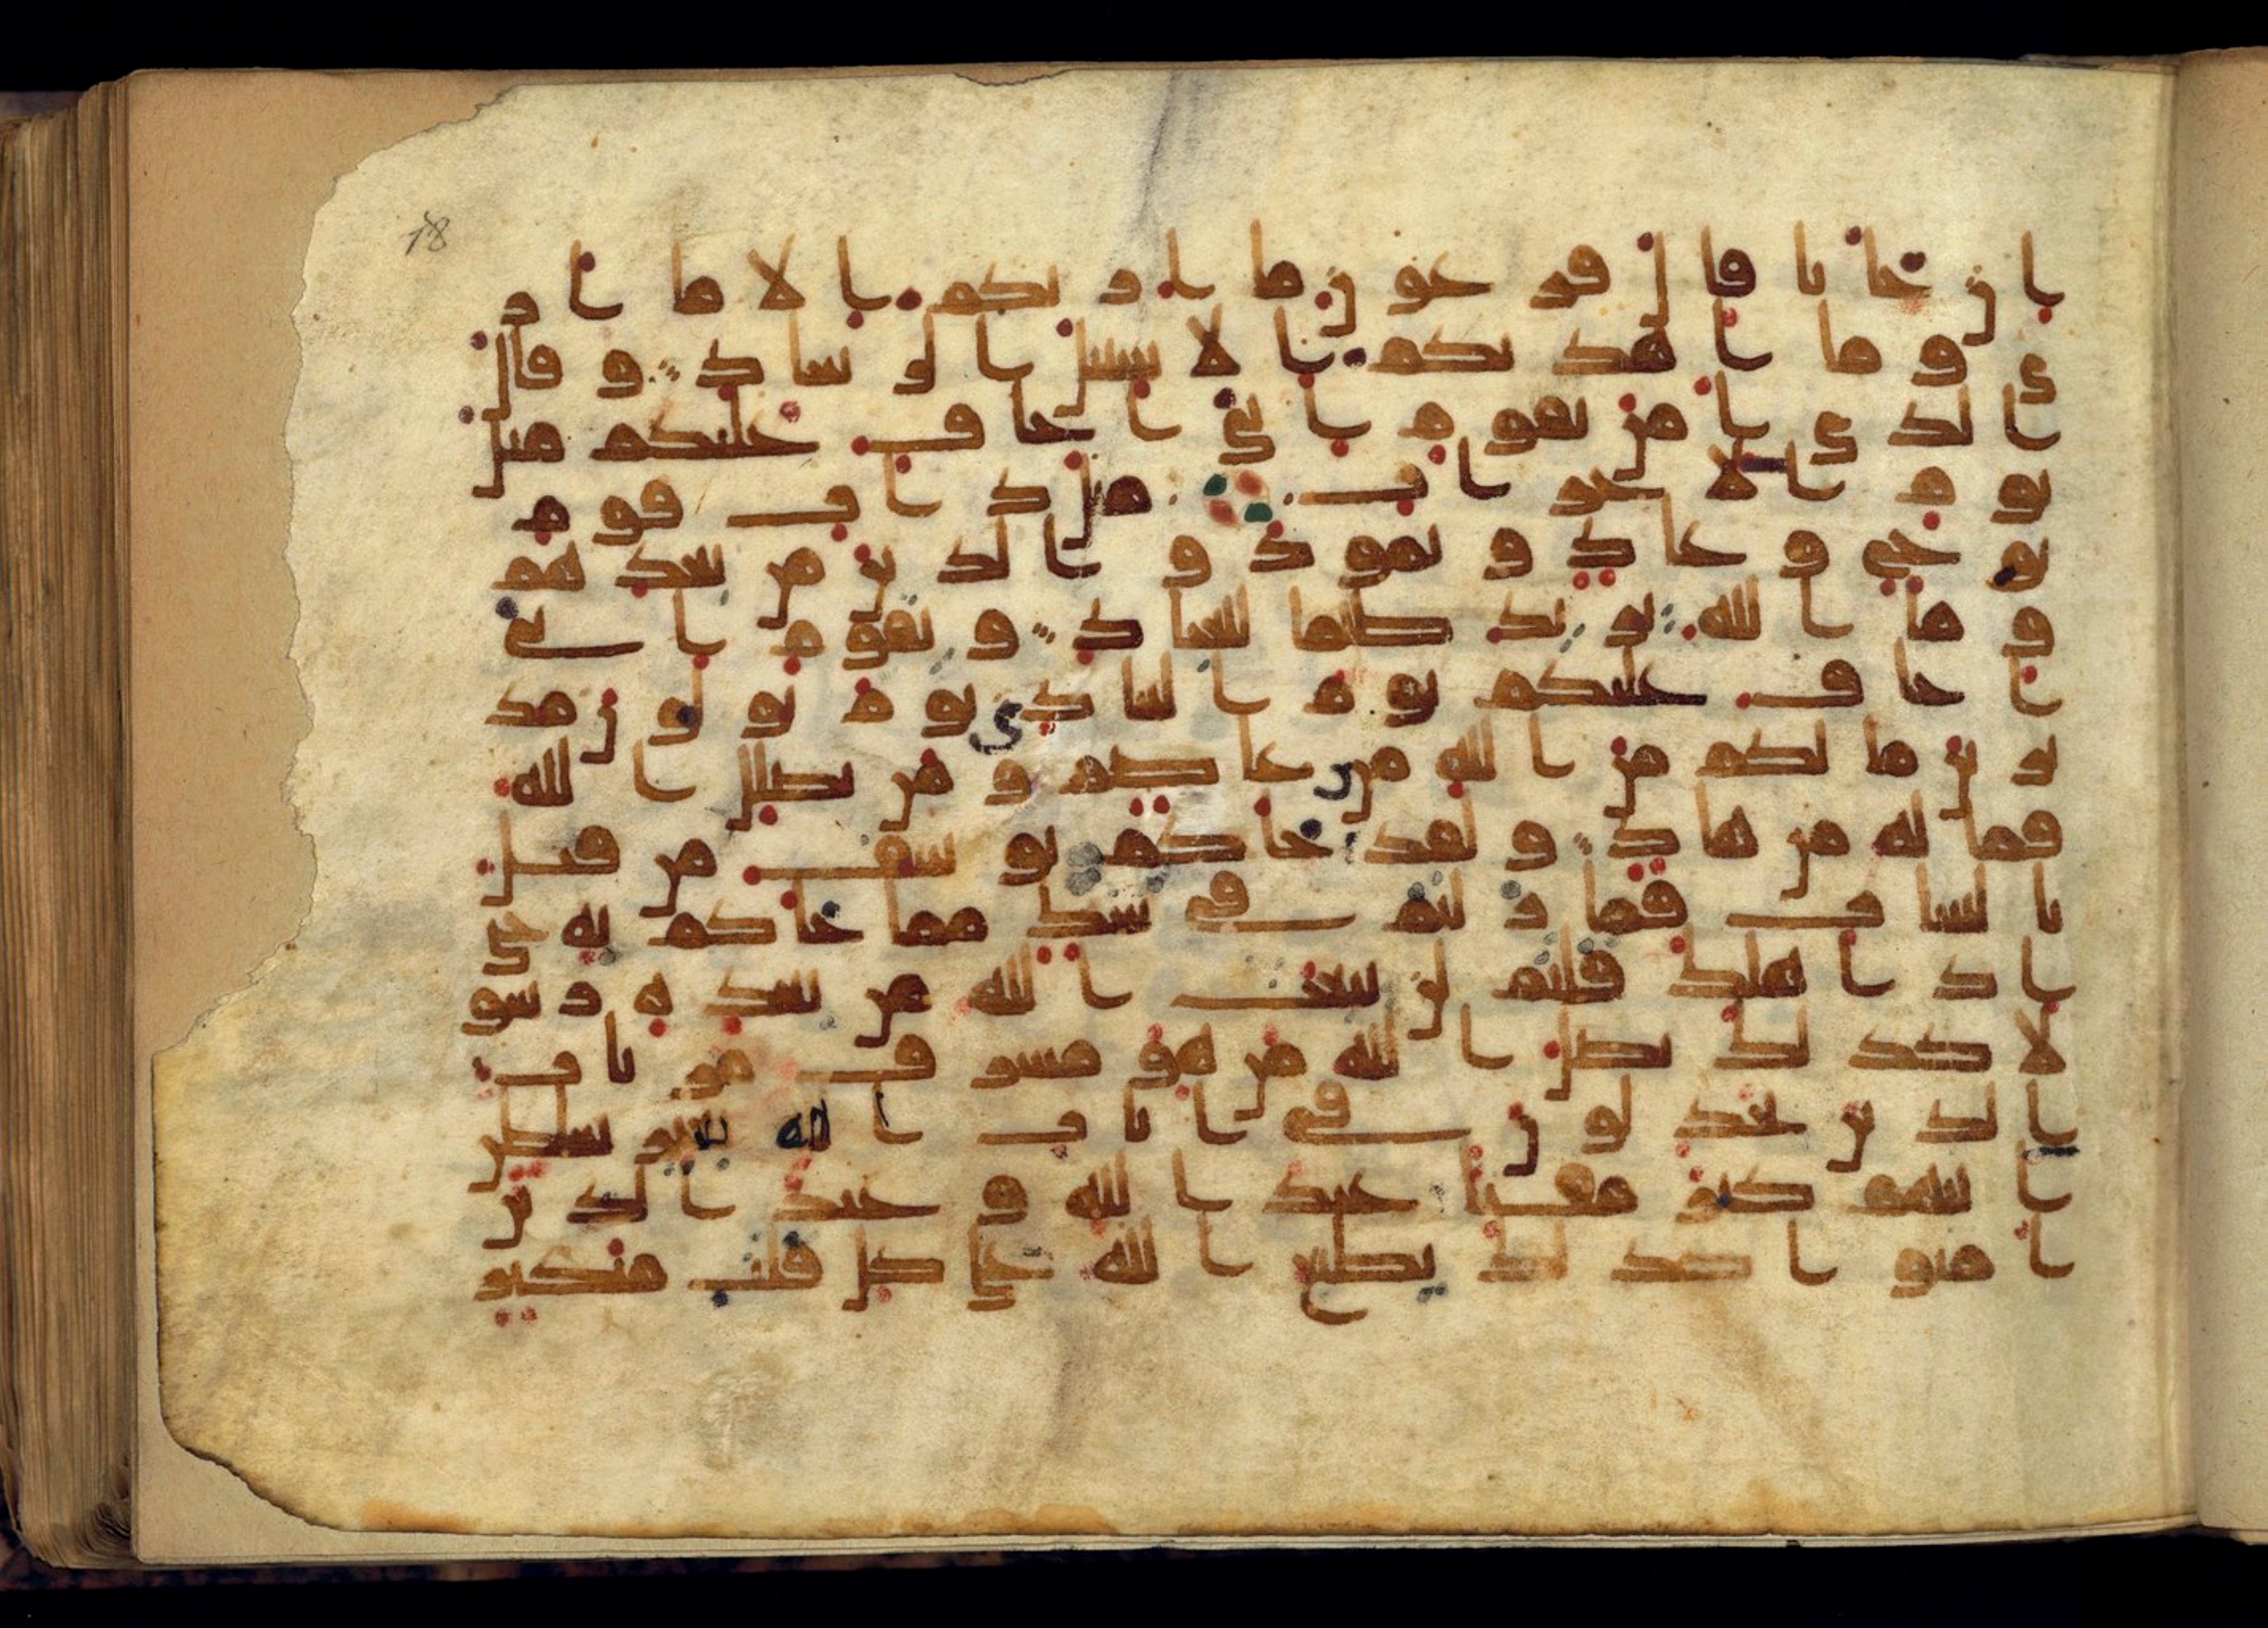 18
ان جانا قال فرعون ما اريكم الا ما ار
ى وما اهديكم الا سبيل الرشاد وقال
الذى امن يقوم انى اخاف عليكم مثل
يوم الاحزاب مثل داب قوم
نوح وعاد وثمود والذين من بعدهم
وما الله يريد ظلما للعباد ويقوم انى
اخاف عليكم يوم التنادى يوم تولون مد
برين ما لكم من الله من عاصم ومن يضلل الله
فما له من هاد ولقد جاكم يوسف من قبل
بالبينات فما زلتم فى شك مما جاكم به حتى
اذا هلك قلتم لن يبعث الله من بعده رسو
لا كذلك يضل الله من هو مسرف مرتاب
الذين يجدلون فى ايات الله بغير سلطن
اتيهم كبر مقتا عند الله وعند الذين
امنوا كذلك يطبع الله على كل قلب متكبر